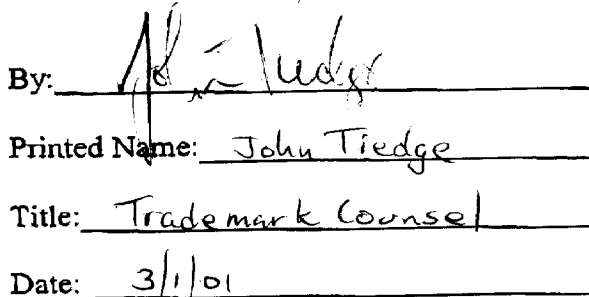 By: John Tiedge
Printed Name: John Tiedge
Title: Trademark Counsel
Date: 3/1/01